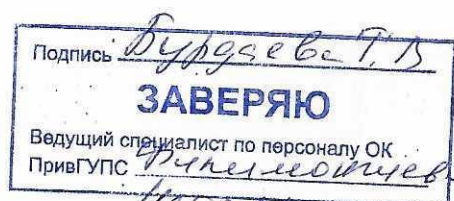 Подпись Бурдаева Т.В
ЗАВЕРЯЮ
Ведущий специалист по персоналу ОК
ПривГУПС